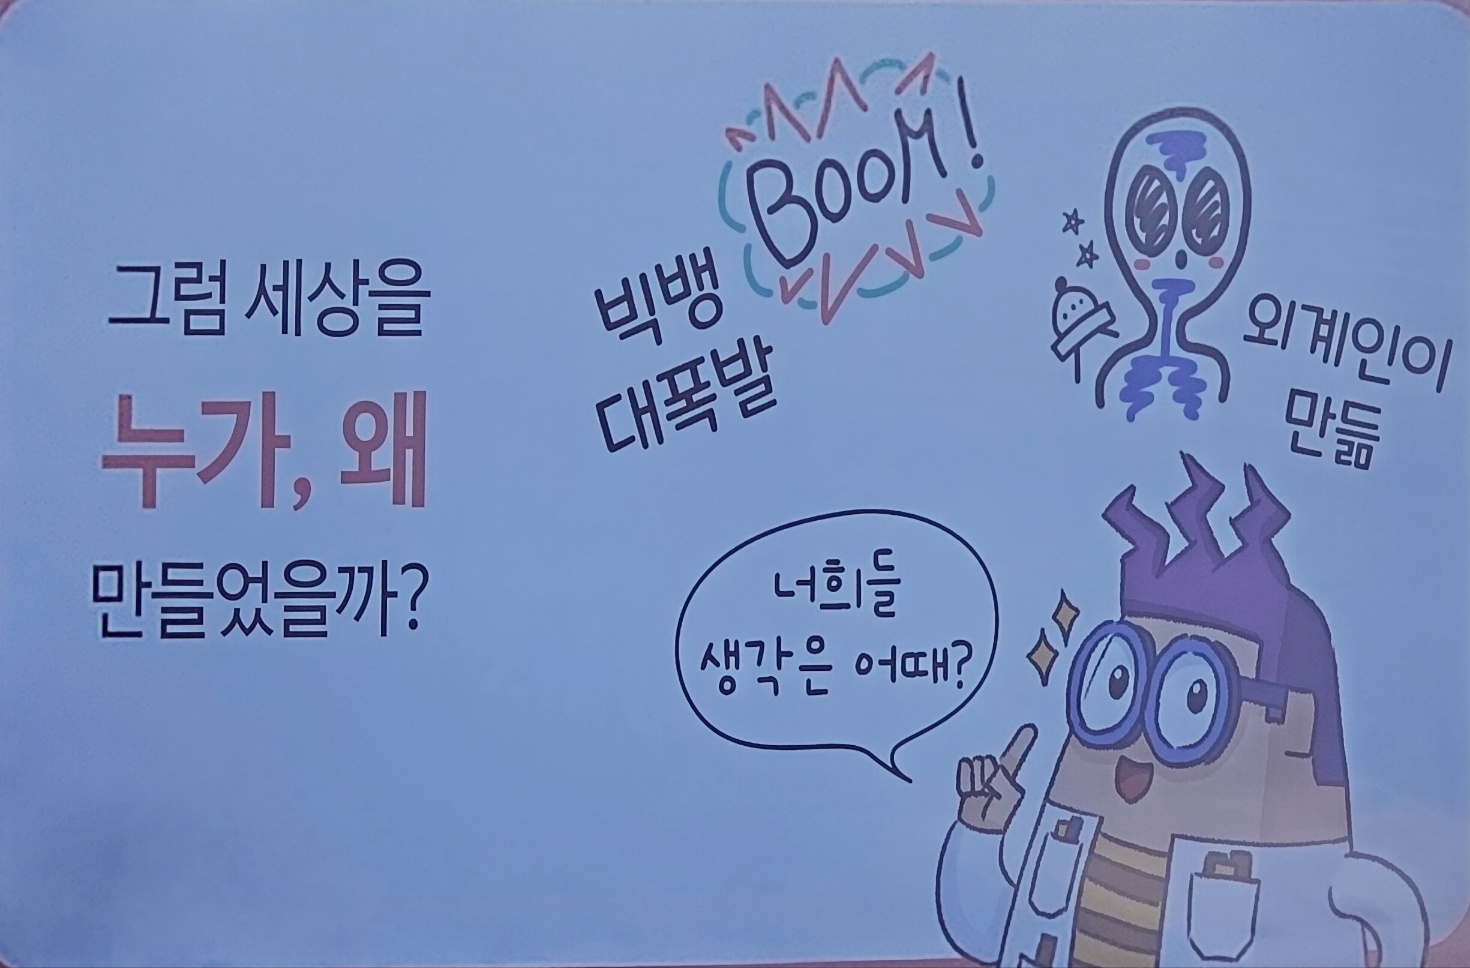 그럼 세상을
누가, 왜
만들었을까?
BOOM!
빅뱅
대폭발
외계인이
만듦
너희들
생각은 어때?